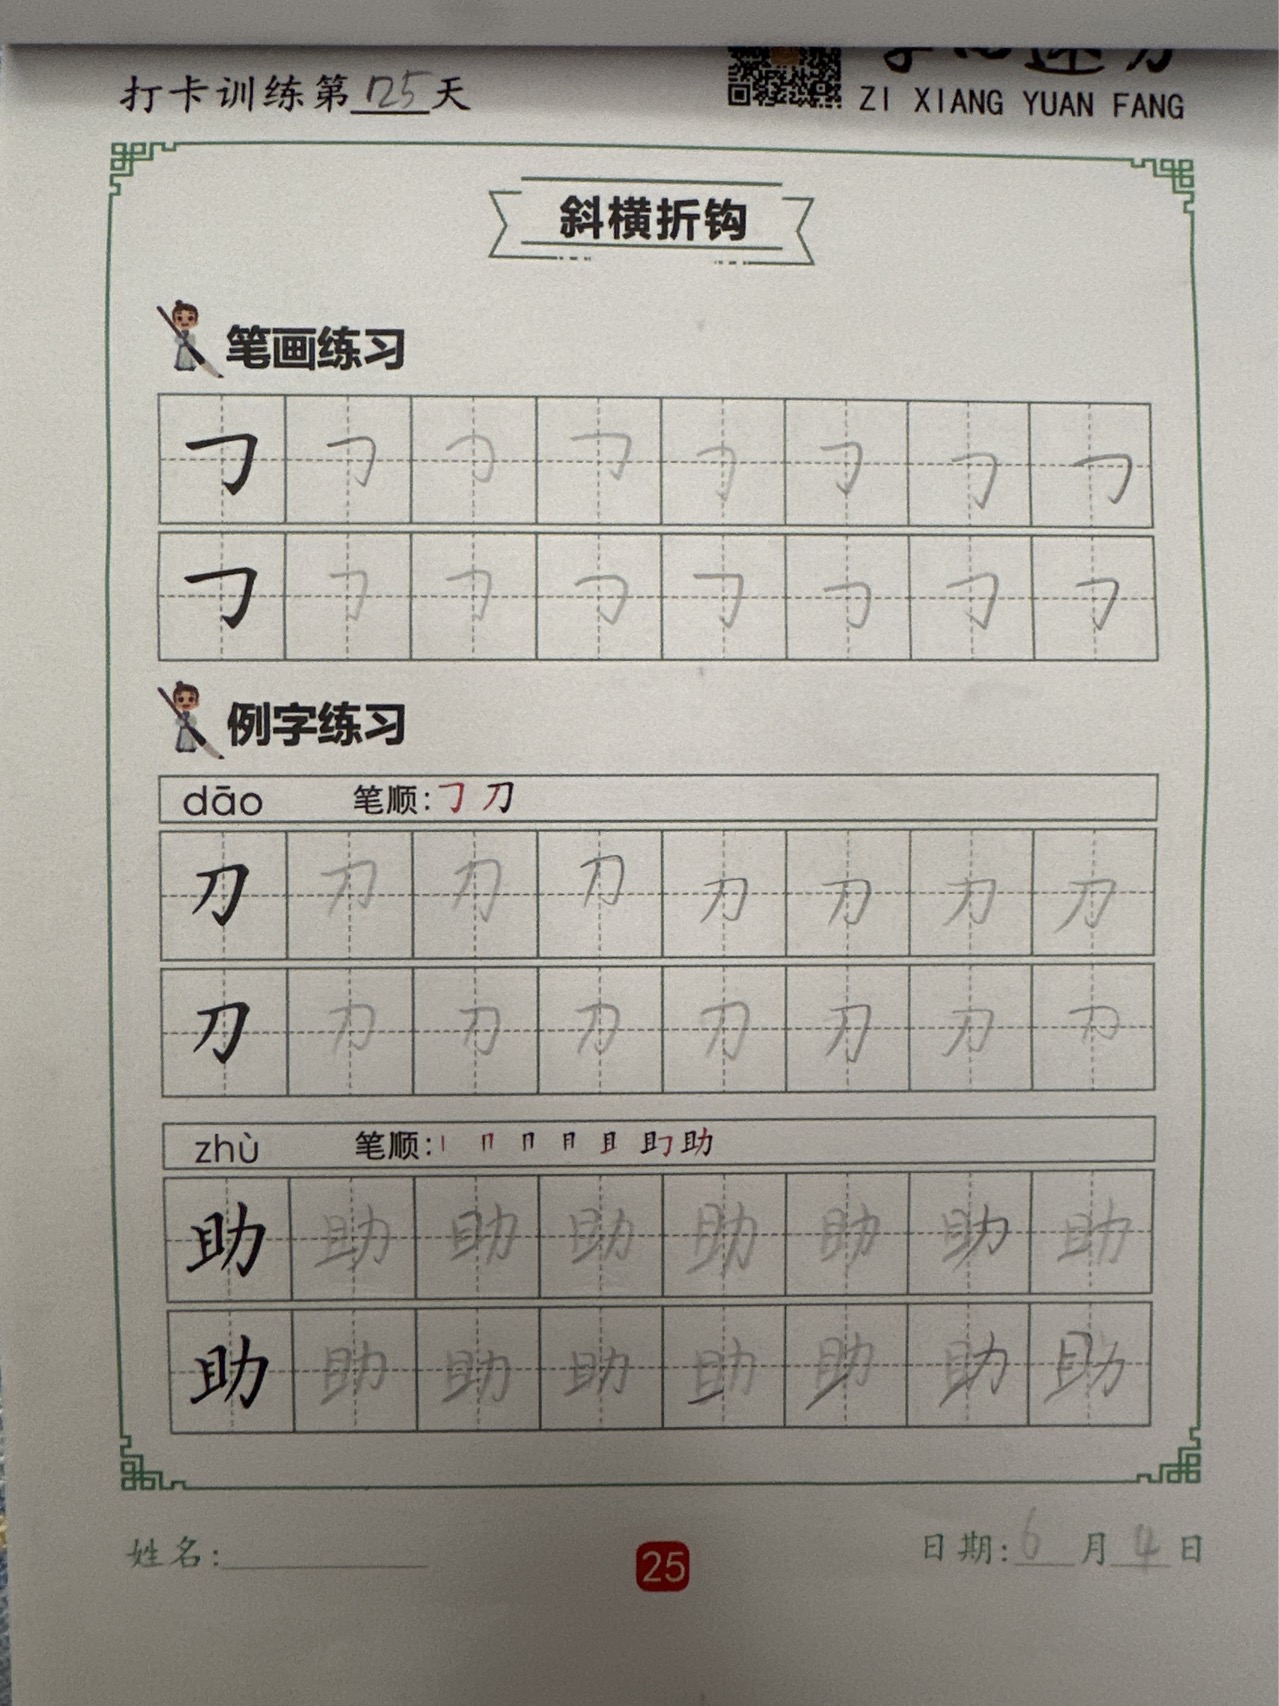 打卡训练第125天
ZI XIANG YUAN FANG
斜横折钩
笔画练习
㇆ ㇆ ㇆ ㇆ ㇆ ㇆ ㇆ ㇆
㇆ ㇆ ㇆ ㇆ ㇆ ㇆ ㇆ ㇆
例字练习
dāo 笔顺:㇆ 刀
刀 刀 刀 刀 刀 刀 刀 刀
刀 刀 刀 刀 刀 刀 刀 刀
zhù 笔顺:丨 冂 助
助 助 助 助 助 助 助 助
助 助 助 助 助 助 助 助
姓名:
25
日期:6月4日